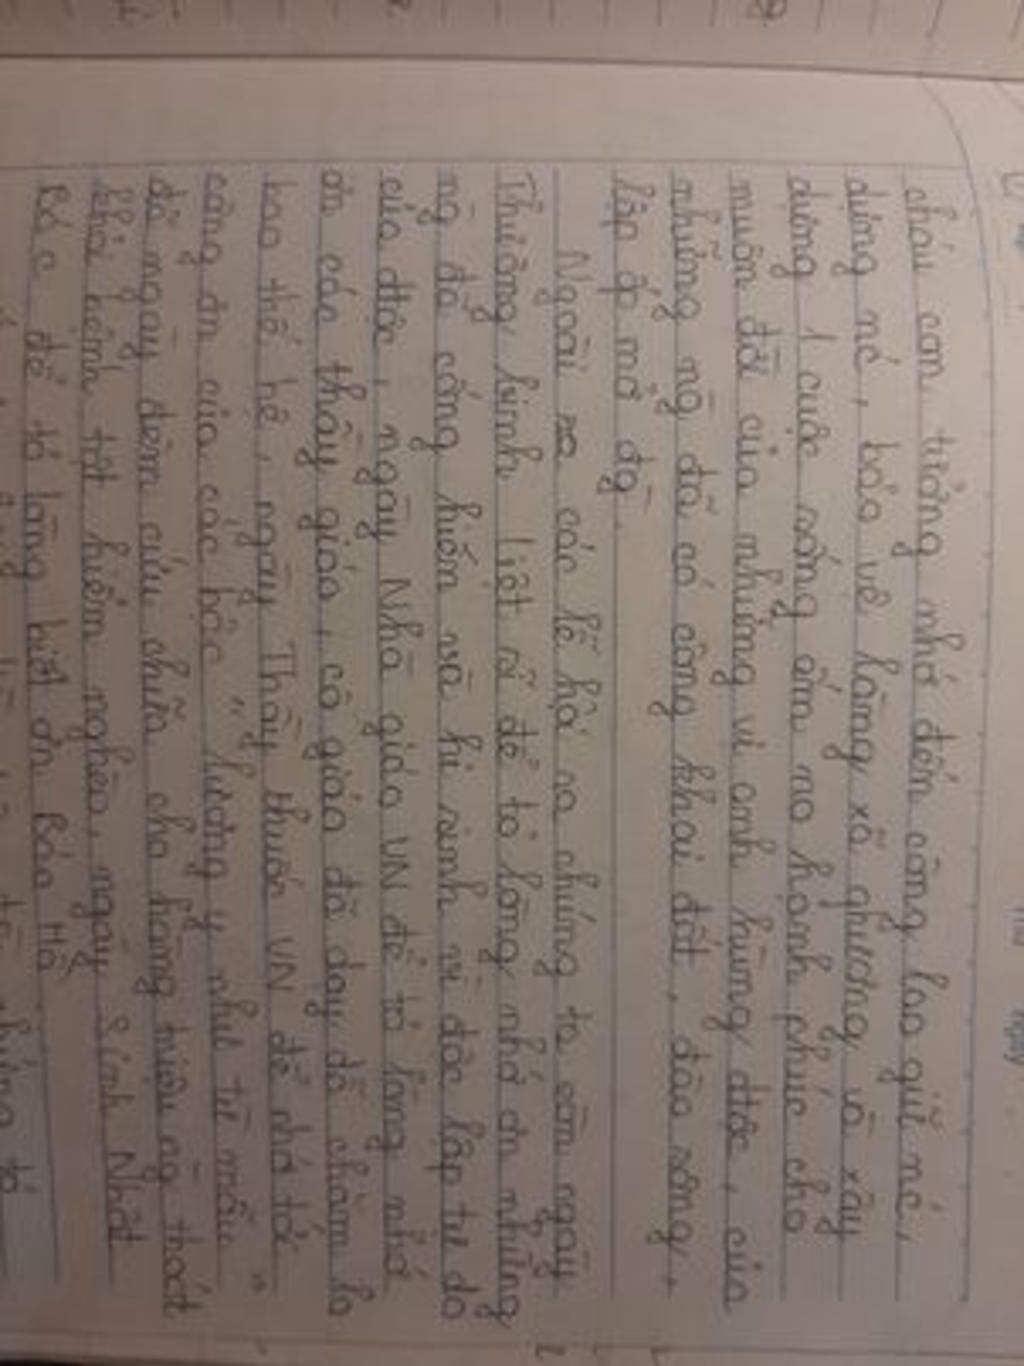 cháu con tưởng nhớ đến công lao giữ nc,
dựng nc, bảo vệ làng, xã, phương và xây
dựng 1 cuộc sống ấm no hạnh phúc cho
muôn đời của những vị anh hùng dtộc, của
những ng̅ đã có công khai đất, đào sông,
lập ấp mở đg̅.
Ngoài ra các lễ hội ra chúng ta còn ngày
Thương binh liệt sĩ để tỏ lòng nhớ ơn những
ng̅ đã cống hiến và hi sinh vì độc lập tự do
của dtộc, ngày Nhà giáo VN để tỏ lòng nhớ
ơn các thầy giáo, cô giáo đã dạy dỗ chăm lo
bao thế hệ, ngày Thầy thuốc VN để nhớ tới
công ơn của các bậc "lương y như từ mẫu"
đã ngày đêm cứu chữa cho hàng triệu ng̅ thoát
khỏi bệnh tật hiểm nghèo, ngày Sinh Nhật
Bác để tỏ lòng biết ơn Bác Hồ